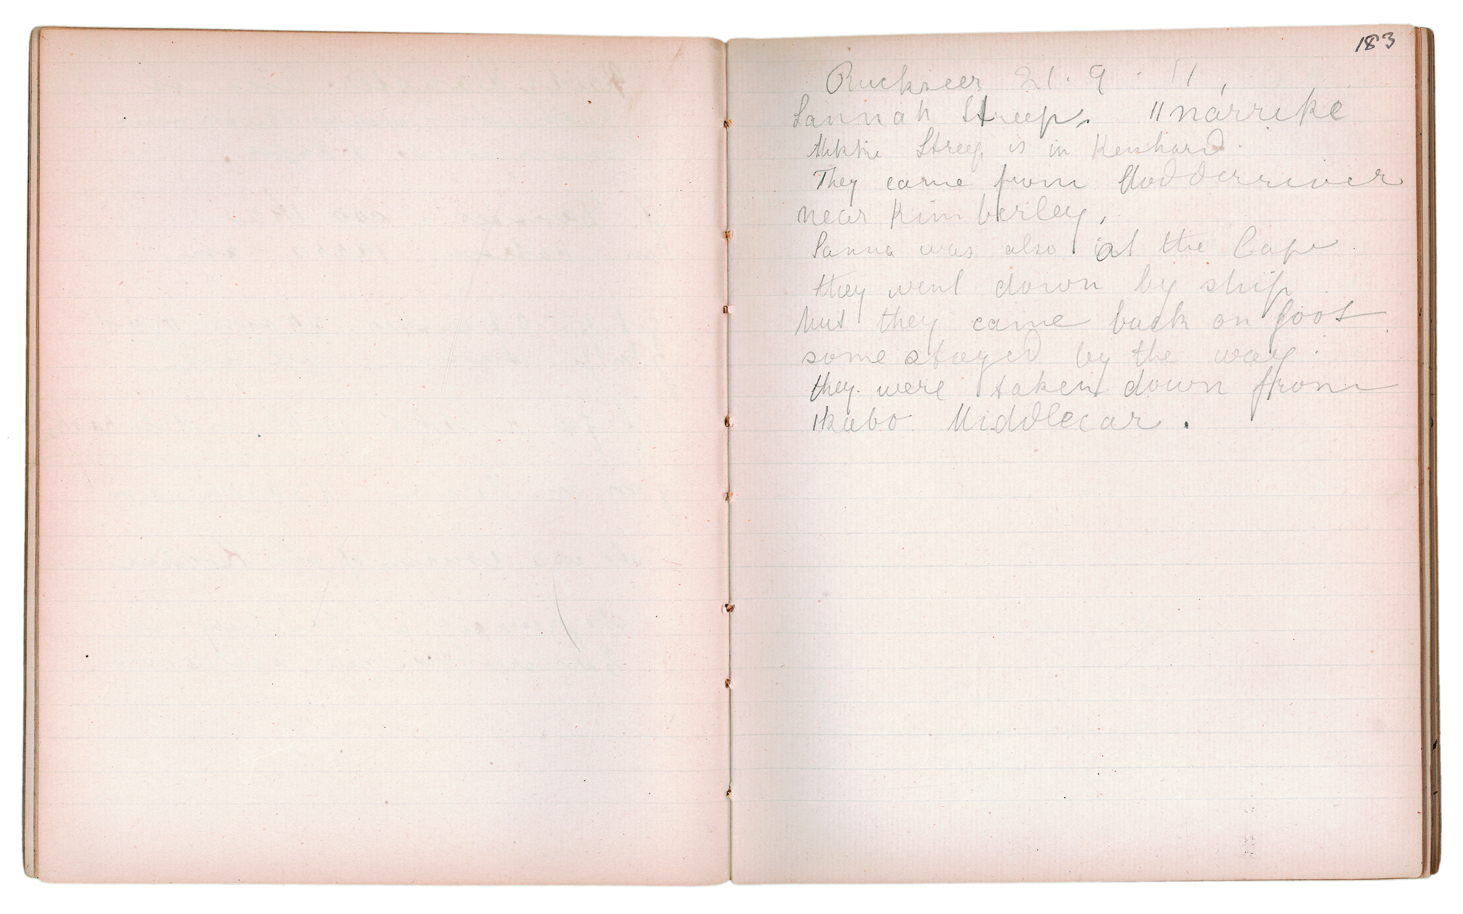 183
Ruckseer 21.9.11
Sannah Streep. ǁnárrike
Mikkie Streep is in Kenhard.
They came from Modderriver
near Kimberley,
Sanna was also at the Cape
they went down by ship
but they came back on foot
some stayed by the way.
they were taken down from
Middlecar.